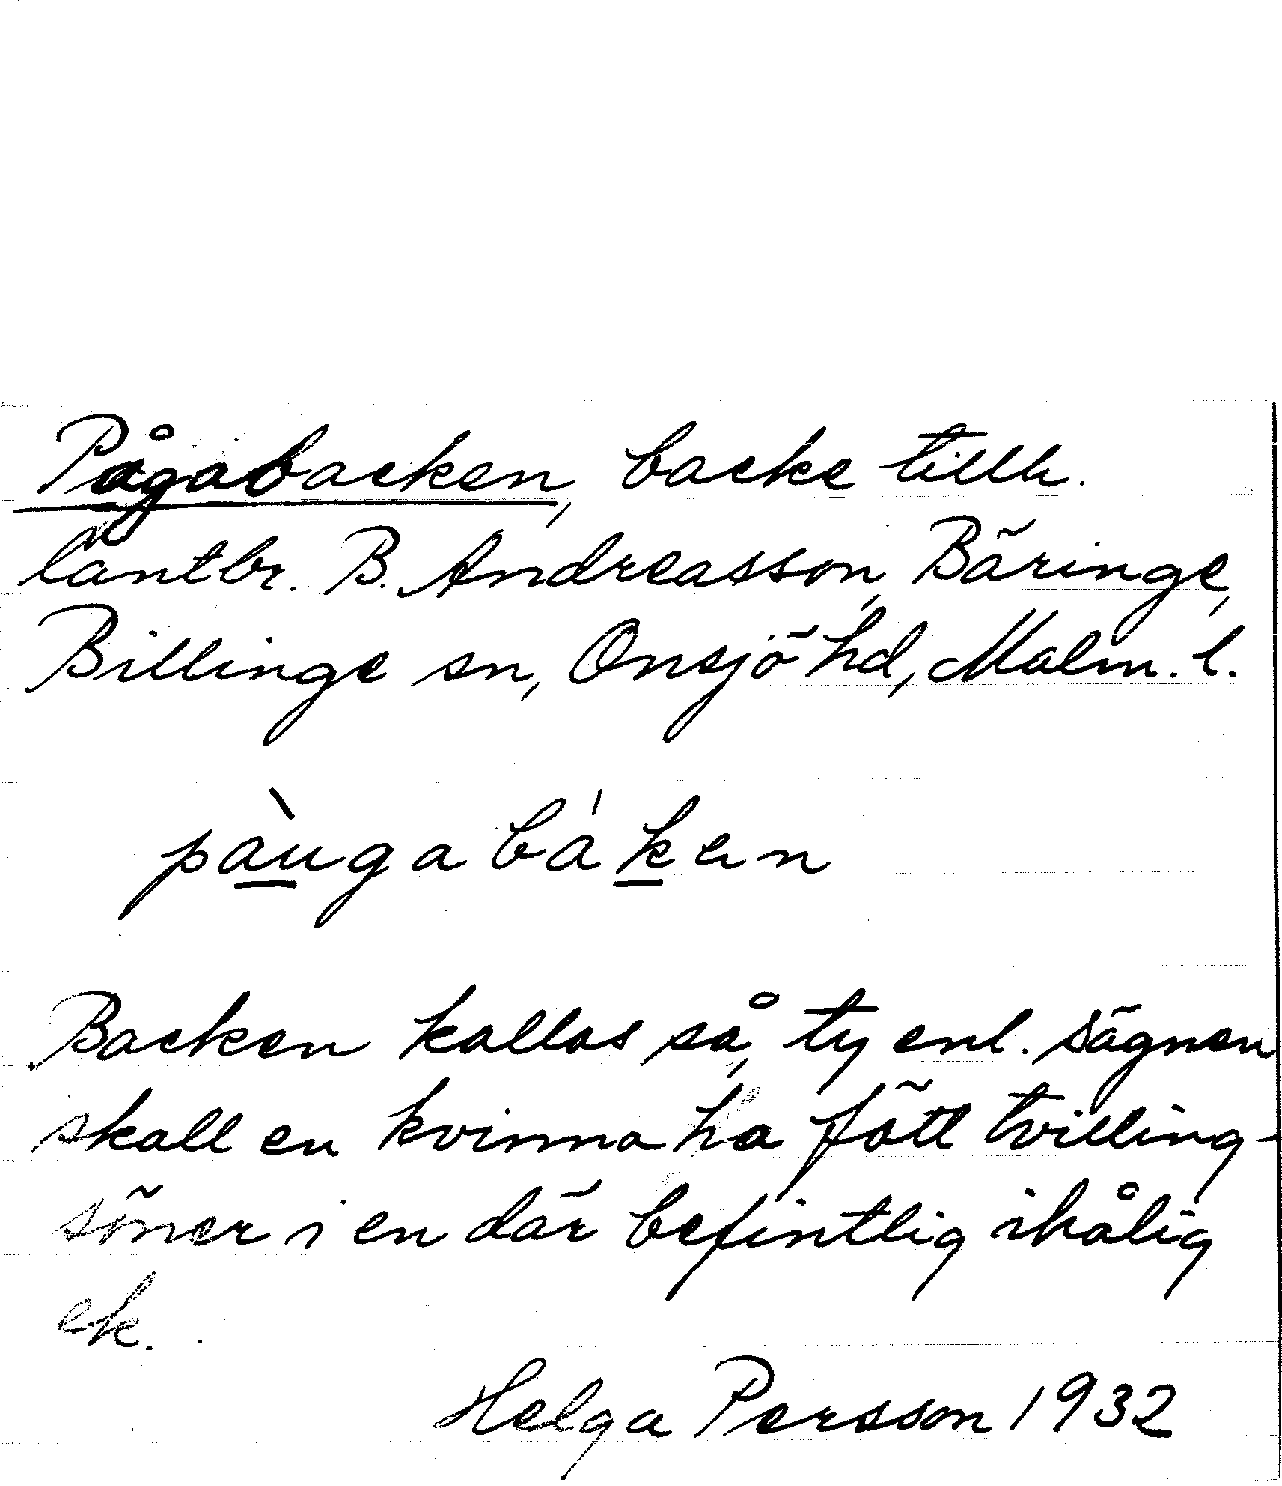 Pågabacken, backe tillh.
lantbr. B. Andreasson, Bäringe,
Billinge sn, Onsjö hd, Malm. l.
pàugabákan
Backen kallas så, ty enl. sägnen
skall en kvinna ha fött tvilling-
söner i en där befintlig ihålig
ek.
Helga Persson 1932